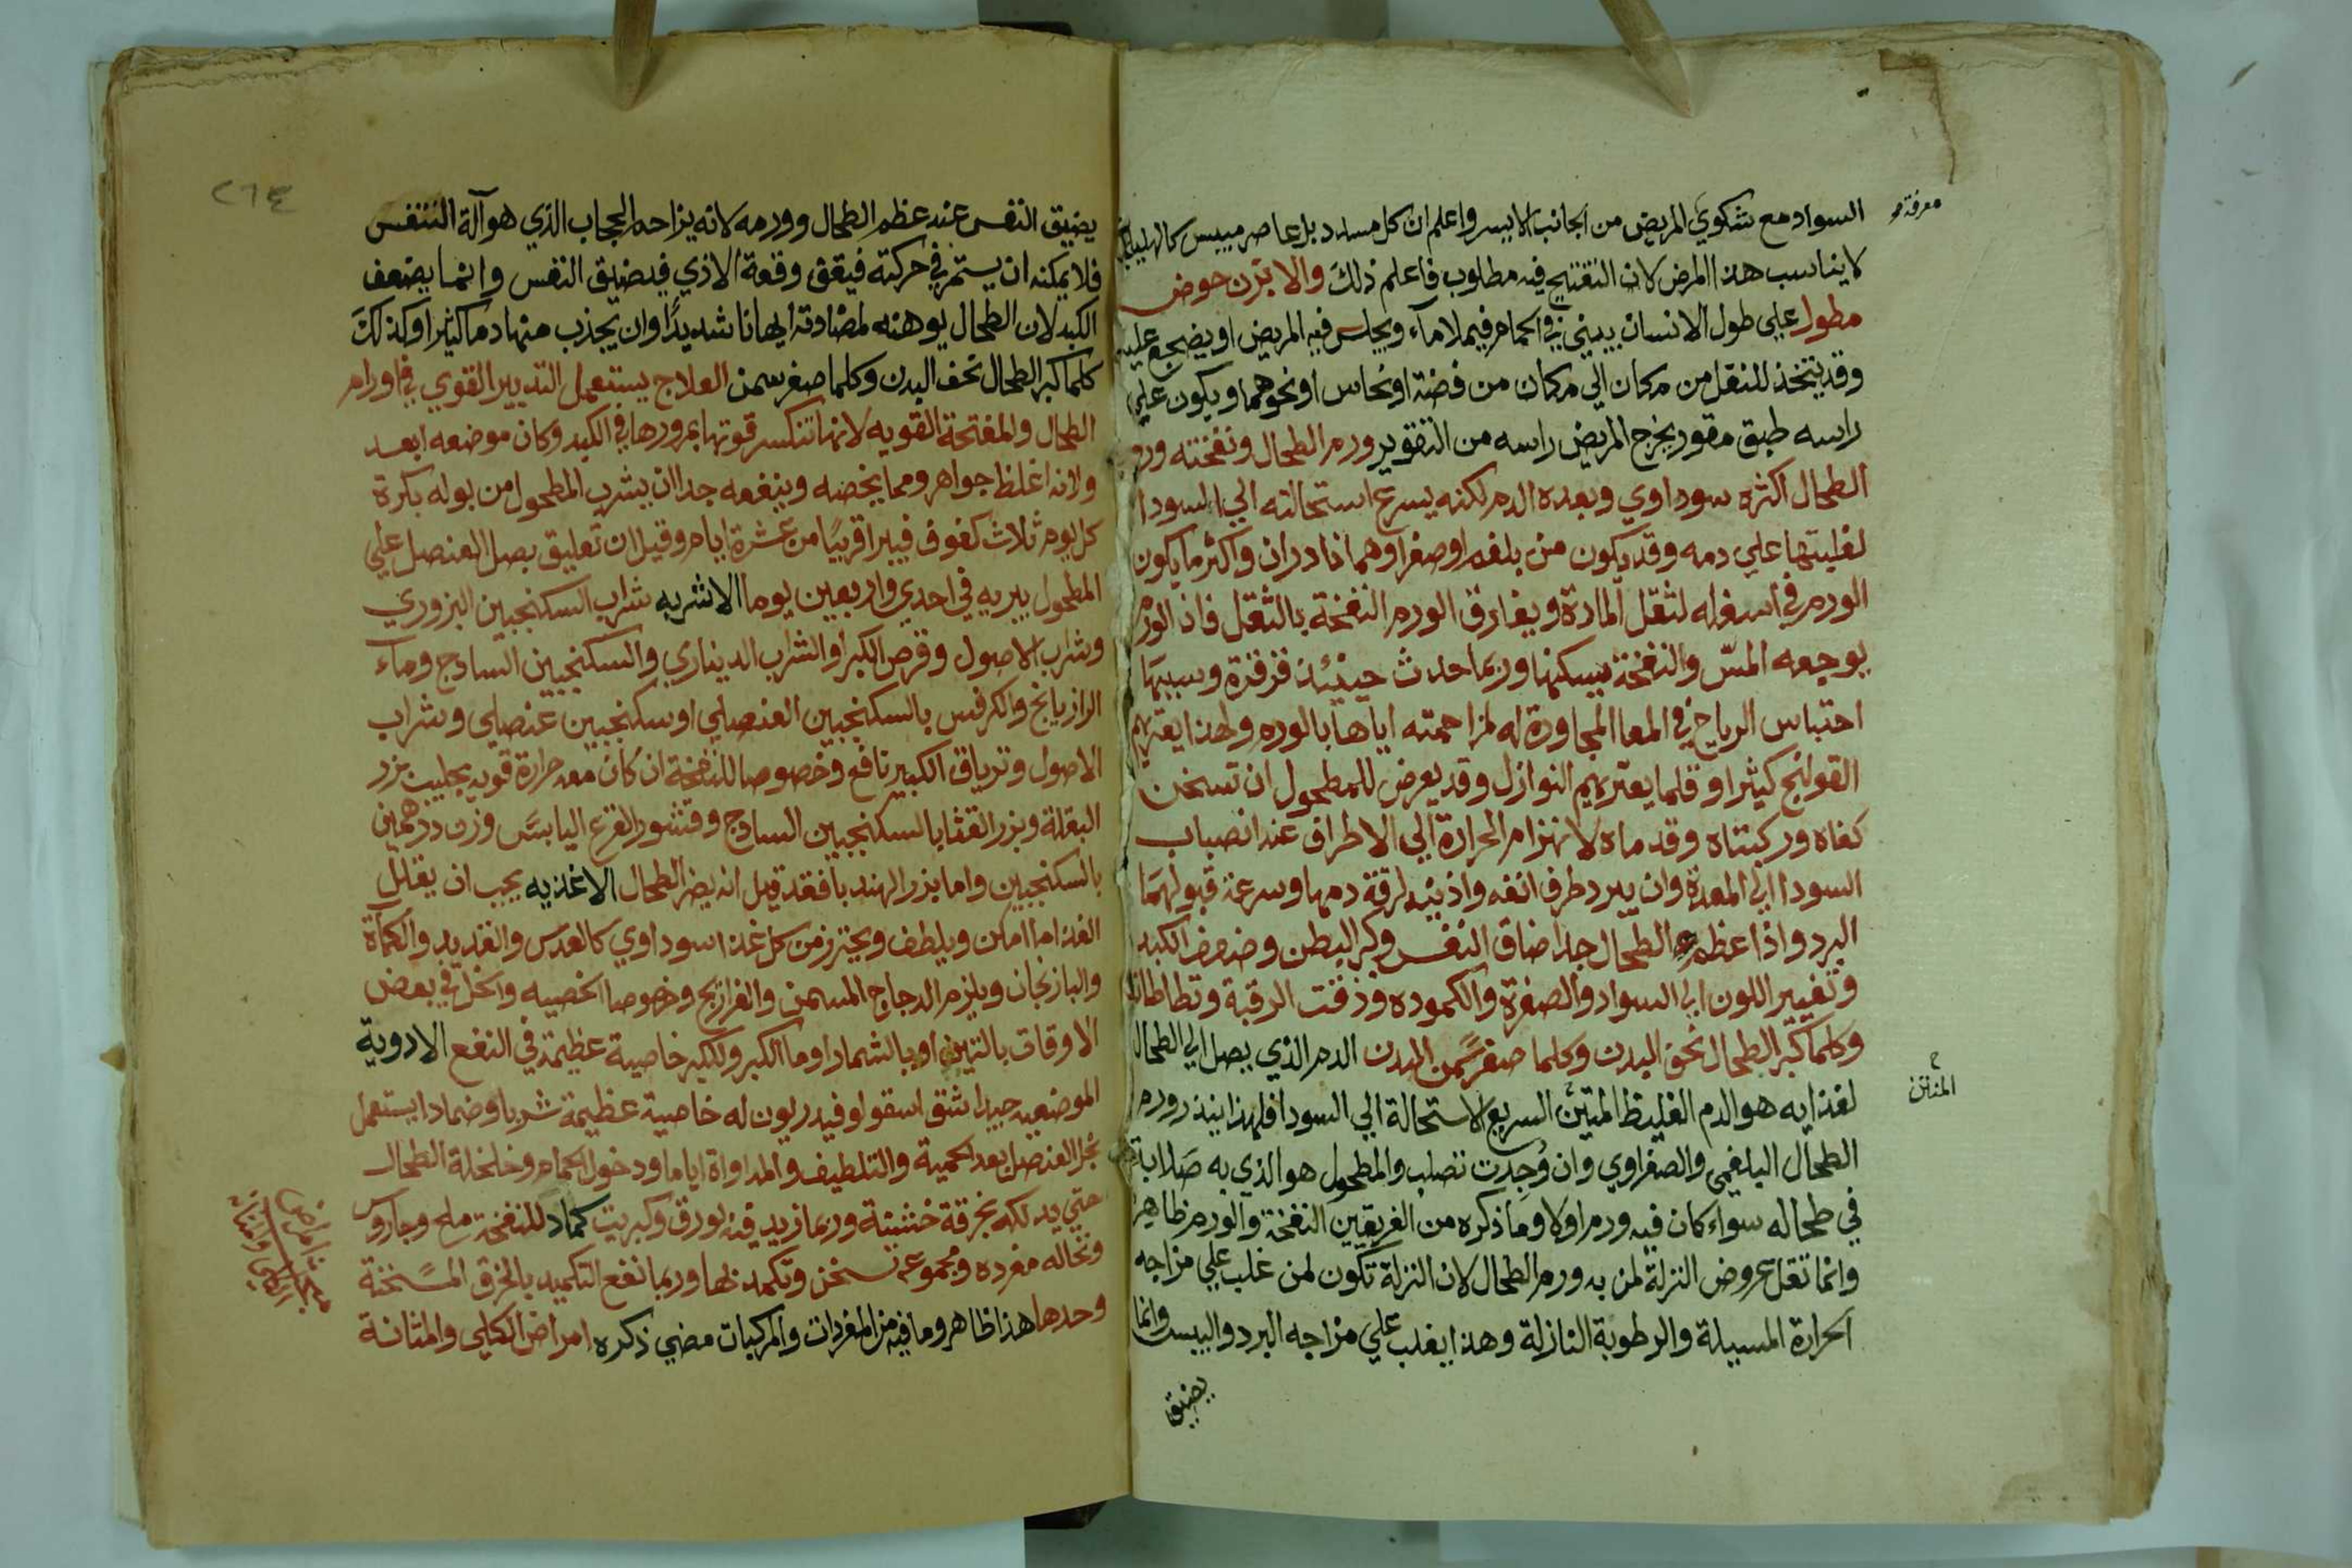 السواد مع شكوي المريض من الجانب الايسر واعلم ان كل مسدد بل عاصر ميبس كالهليلج
معرفة
لا يناسب هذا المرض لان التفتيح فيه مطلوب فاعلم ذلك والابزن حوض
مطول علي طول الانسان يبني في الحمام فيملا مآء ويجلس فيه المريض او يضجع عليه
وقد يتخذ للنقل من مكان الي مكان من فضة او نحاس او نحوهما ويكون علي
راسه طبق مقور يخرج المريض راسه من التقوير ورم الطحال ونفخته ورم
الطحال اكثره سوداوي وبعده الدم لكنه يسرع استحالته الي السودا
لغلبتها علي دمه وقد يكون من بلغم او صفرا وهما نادران واكثر ما يكون
الورم في اسفله لثقل المادة ويفارق الورم النفخة بالثقل فان الورم
يوجعه المسّ والنفخة يسكنها وربما حدث حينئذ قرقرة وسببها
احتباس الرياح في المعا المجاورة له لمزاحمته اياها بالورم ولهذا يعتريهم
القولنج كثيرا وقلما يعتريهم النوازل وقد يعرض للمطحول ان تسخن
كفاه وركبتاه وقدماه لانهزام الحرارة الي الاطراف عند انصباب
السودا الي المعدة وان يبرد طرف انفه واذنيه لرقة دمها وسرعة قبولهما
البرد واذا عظم الطحال جدا ضاق النفس وكبر البطن وضمر الكبد
وتغيير اللون الي السواد والصفرة والكموده ودقت الرقبة وتطاطات
وكلما كبر الطحال نحف البدن وكلما صغر سمن البدن الدم الذي يصل الي الطحال
لغذايه هو الدم الغليظ المتين السريع الاستحالة الي السودا فلهذا يندر ورم
المنتن
الطحال البلغمي والصفراوي وان وُجدت تصلب والمطحول هو الذي به صلابة
في طحاله سواء كان فيه ورم اولا وما ذكره من الفريقين النفخة والورم ظاهر
وانما تقل عروض النزلة لمن به ورم الطحال لان النزلة تكون لمن غلب علي مزاجه
الحرارة المسيلة والرطوبة النازلة وهذا يغلب علي مزاجه البرد واليبس وانما
يضيق
٢٦٤
يضيق النفس عند عظم الطحال وورمه لانه يزاحم الحجاب الذي هو آلة التنفس
فلا يمكنه ان يستمر في حركته فيقف وقعة الاذي فيضيق النفس وانما يضعف
الكبد لان الطحال يوهنه لمضادته ايهانا شديدًا وان يجذب منها دما كثيرا وكذلك
كلما كبر الطحال نحف البدن وكلما صغر سمن العلاج يستعمل التدبير القوي في اورام
الطحال والمفتحة القويه لانها تنكسر قوتها بمرورها في الكبد وكان موضعه ابعد
ولانه اغلظ جواهر ومما يخصه وينفعه جدا ان يشرب المطحول من بوله بكرة
كل يوم ثلاث كفوف فيبرا قريبًا من عشرة ايام وقيل ان تعليق بصل العنصل علي
المطحول يبريه في احدي واربعين يوما الاشربه شراب السكنجبين البزوري
وشراب الاصول وقرص الكبر او الشراب الديناري والسكنجبين الساذج وماء
الرازيانج والكرفس بالسكنجبين العنصلي او سكنجبين عنصلي وشراب
الاصول وترياق الكبير نافع وخصوصا للنفخة ان كان معه حرارة قويه بجليب بزر
البقلة وبزر القثا بالسكنجبين الساذج وقشور القرع اليابس وزن درهمين
بالسكنجبين واما بزر الهندبا فقد قيل انه يضر الطحال الاغذيه يجب ان يقلل
الغذا ما امكن ويلطف ويحترز من كل غذا سوداوي كالعدس والقديد والكمأة
والباذنجان ويلزم الدجاج المسمن والفراريج وخصوصا الخصيه والخل في بعض
الاوقات بالتين او بالشمار او ما الكبر وللكبر خاصية عظيمة في النفع الادوية
الموضعيه جيدا شق اسقولوقندريون له خاصية عظيمة شربا وضمادا يستعمل
بخل العنصل بعد الحمية والتلطيف والمداواة اياما ودخول الحمام وخلخلة الطحال
حتي يدلكه بخرقة خشنة وربما زيد فيه بورق وكبريت كماد للنفخة ملح وجاروس
ونخاله مفرده ومجموعه تسخن وتكمد بها وربما نفع التكميد بالخرق المسخنة
وحدها هذا ظاهر وما فيه من المفردات والمركبات مضي ذكره امراض الكلي والمثانة